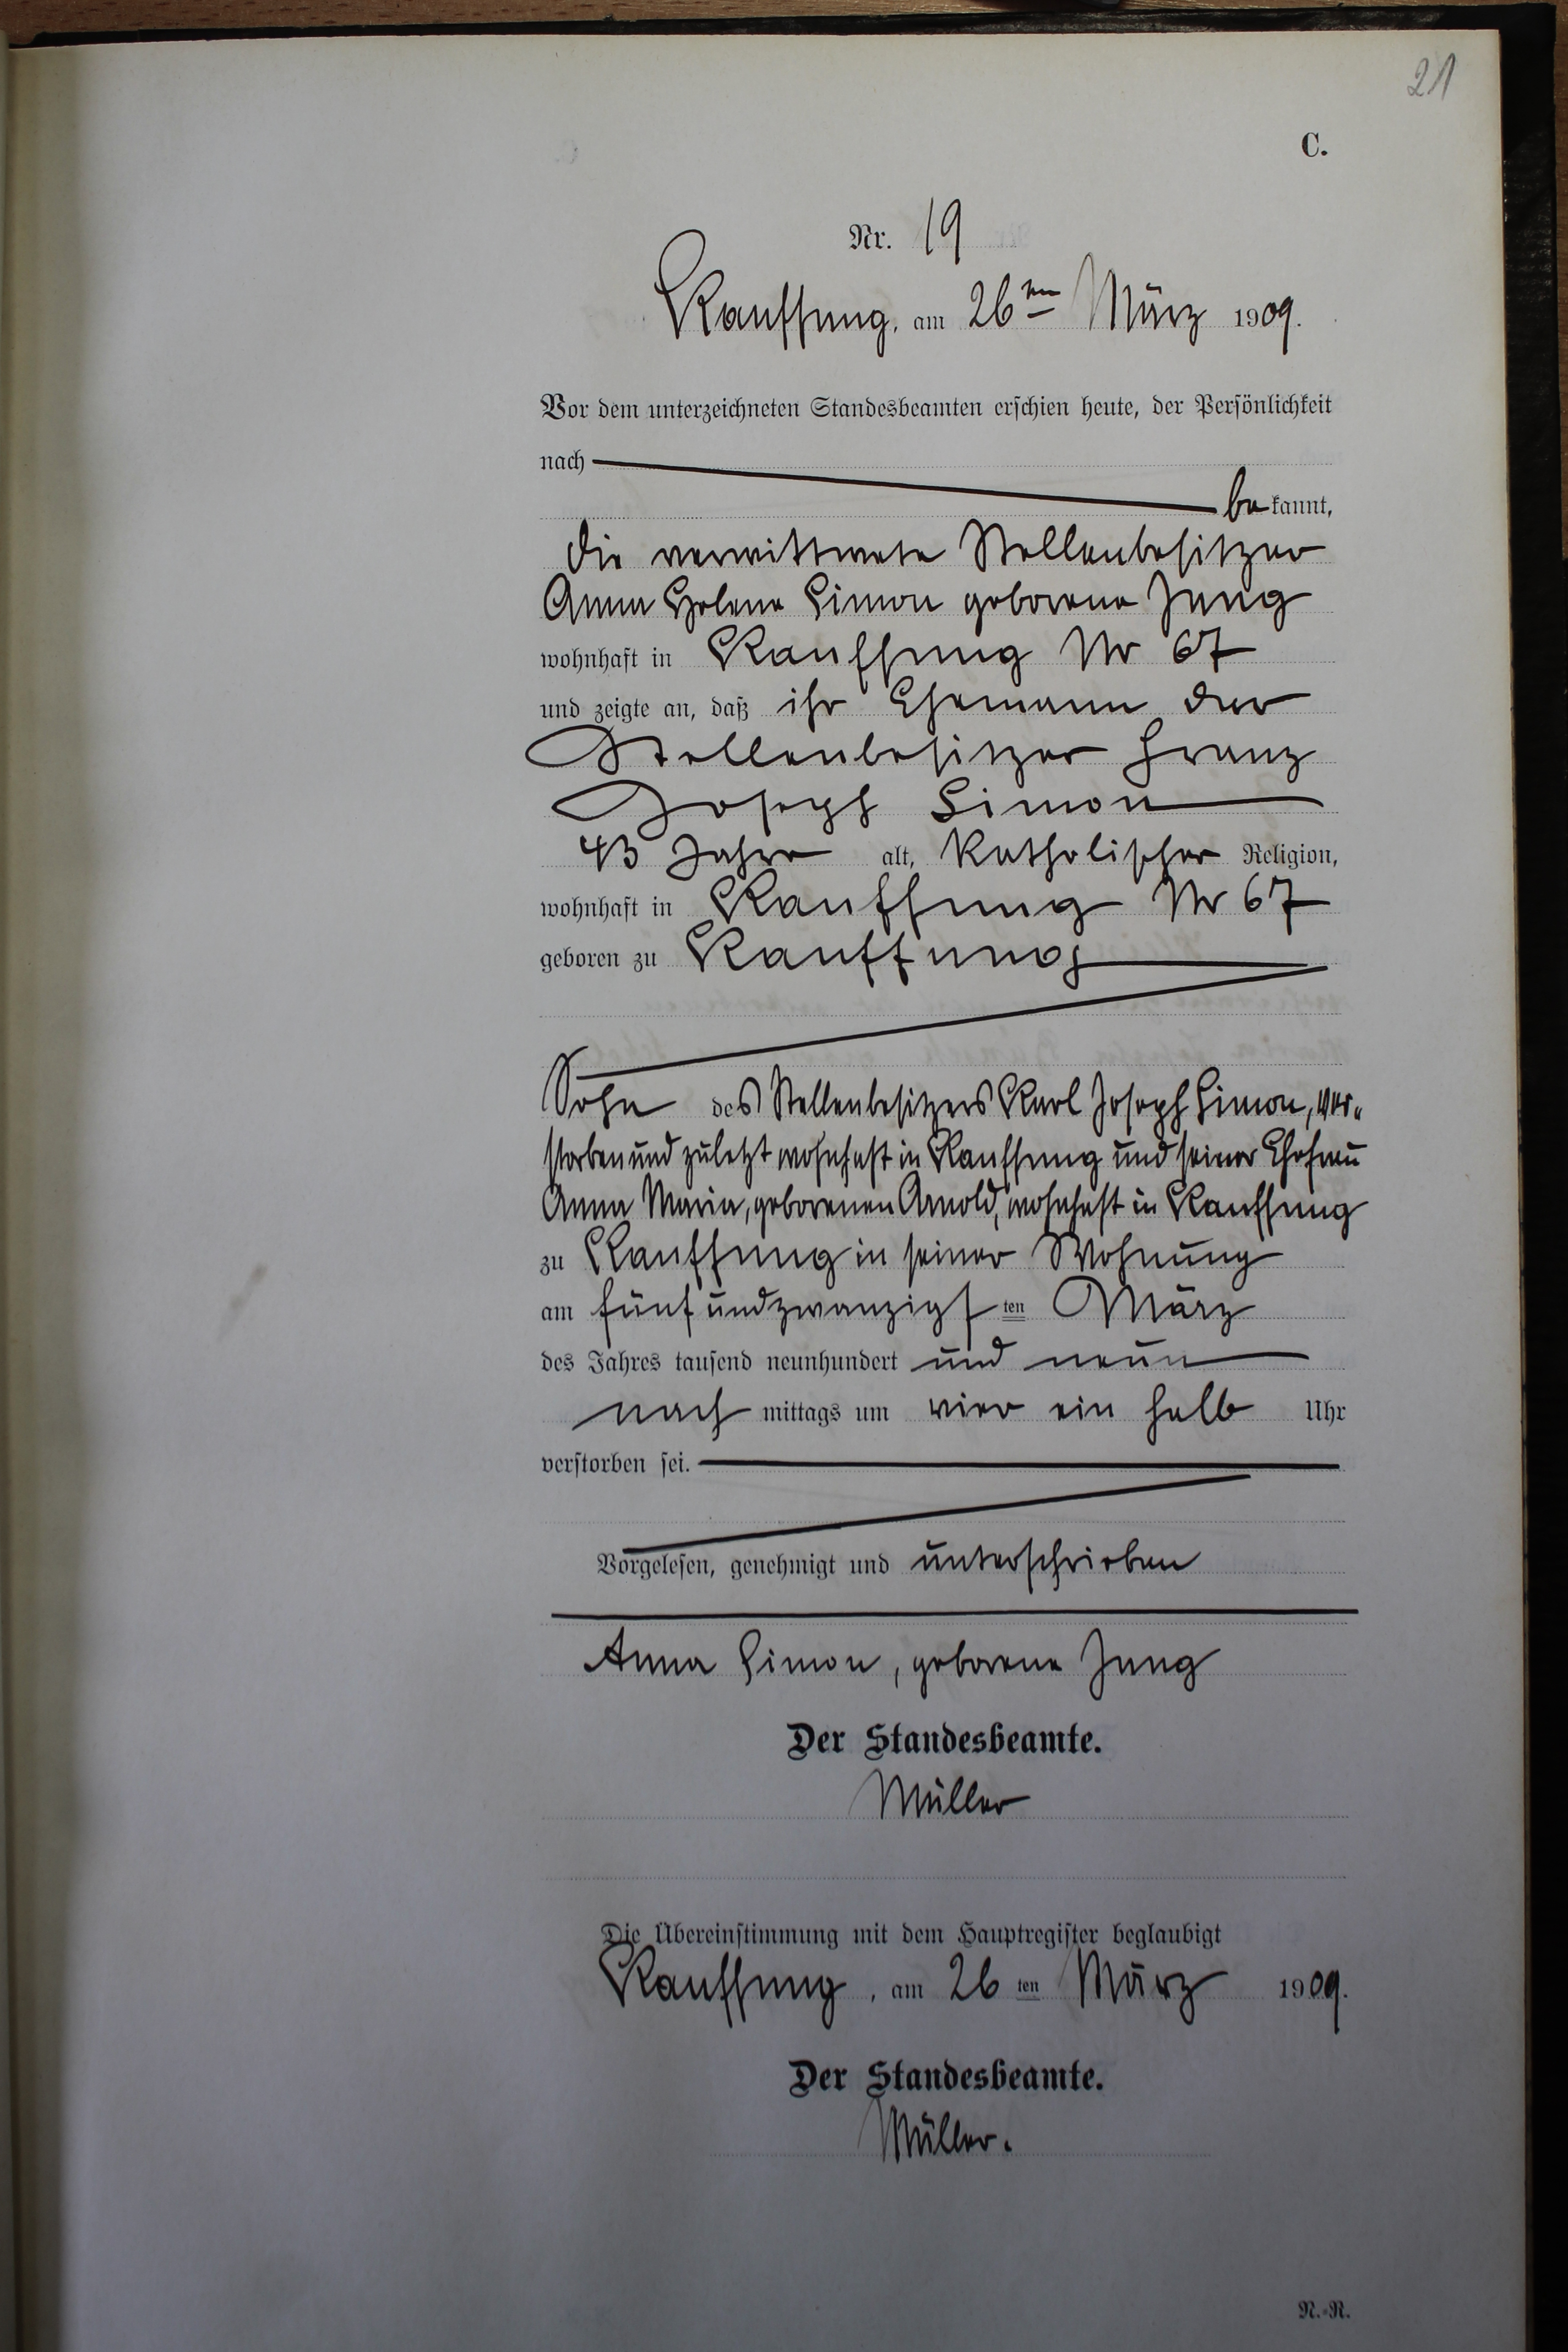 21
C.
Nr. 19
Kauffung, am 26ten März 1909.
Vor dem unterzeichneten Standesbeamten erschien heute, der Persönlichkeit
nach
bekannt,
die verwittwete Stellenbesitzer
Anna Helene Simon geborene Jung
wohnhaft in Kauffung Nr 67
und zeigte an, daß ihr Ehemann der
Stellenbesitzer Franz
Joseph Simon
43 Jahre alt, katholischer Religion,
wohnhaft in Kauffung Nr 67
geboren zu Kauffung
Sohn des Stellenbesitzers Karl Joseph Simon, ver-
storben und zuletzt wohnhaft in Kauffung und seiner Ehefrau
Anna Maria, geborenen Arnold, wohnhaft in Kauffung
zu Kauffung in seiner Wohnung
am fünfundzwanzigsten März
des Jahres tausend neunhundert und neun
nachmittags um vier ein halb Uhr
verstorben sei.
Vorgelesen, genehmigt und unterschrieben
Anna Simon, geborene Jung
Der Standesbeamte.
Müller
Die Übereinstimmung mit dem Hauptregister beglaubigt
Kauffung, am 26ten März 1909.
Der Standesbeamte.
Müller.
N.-R.